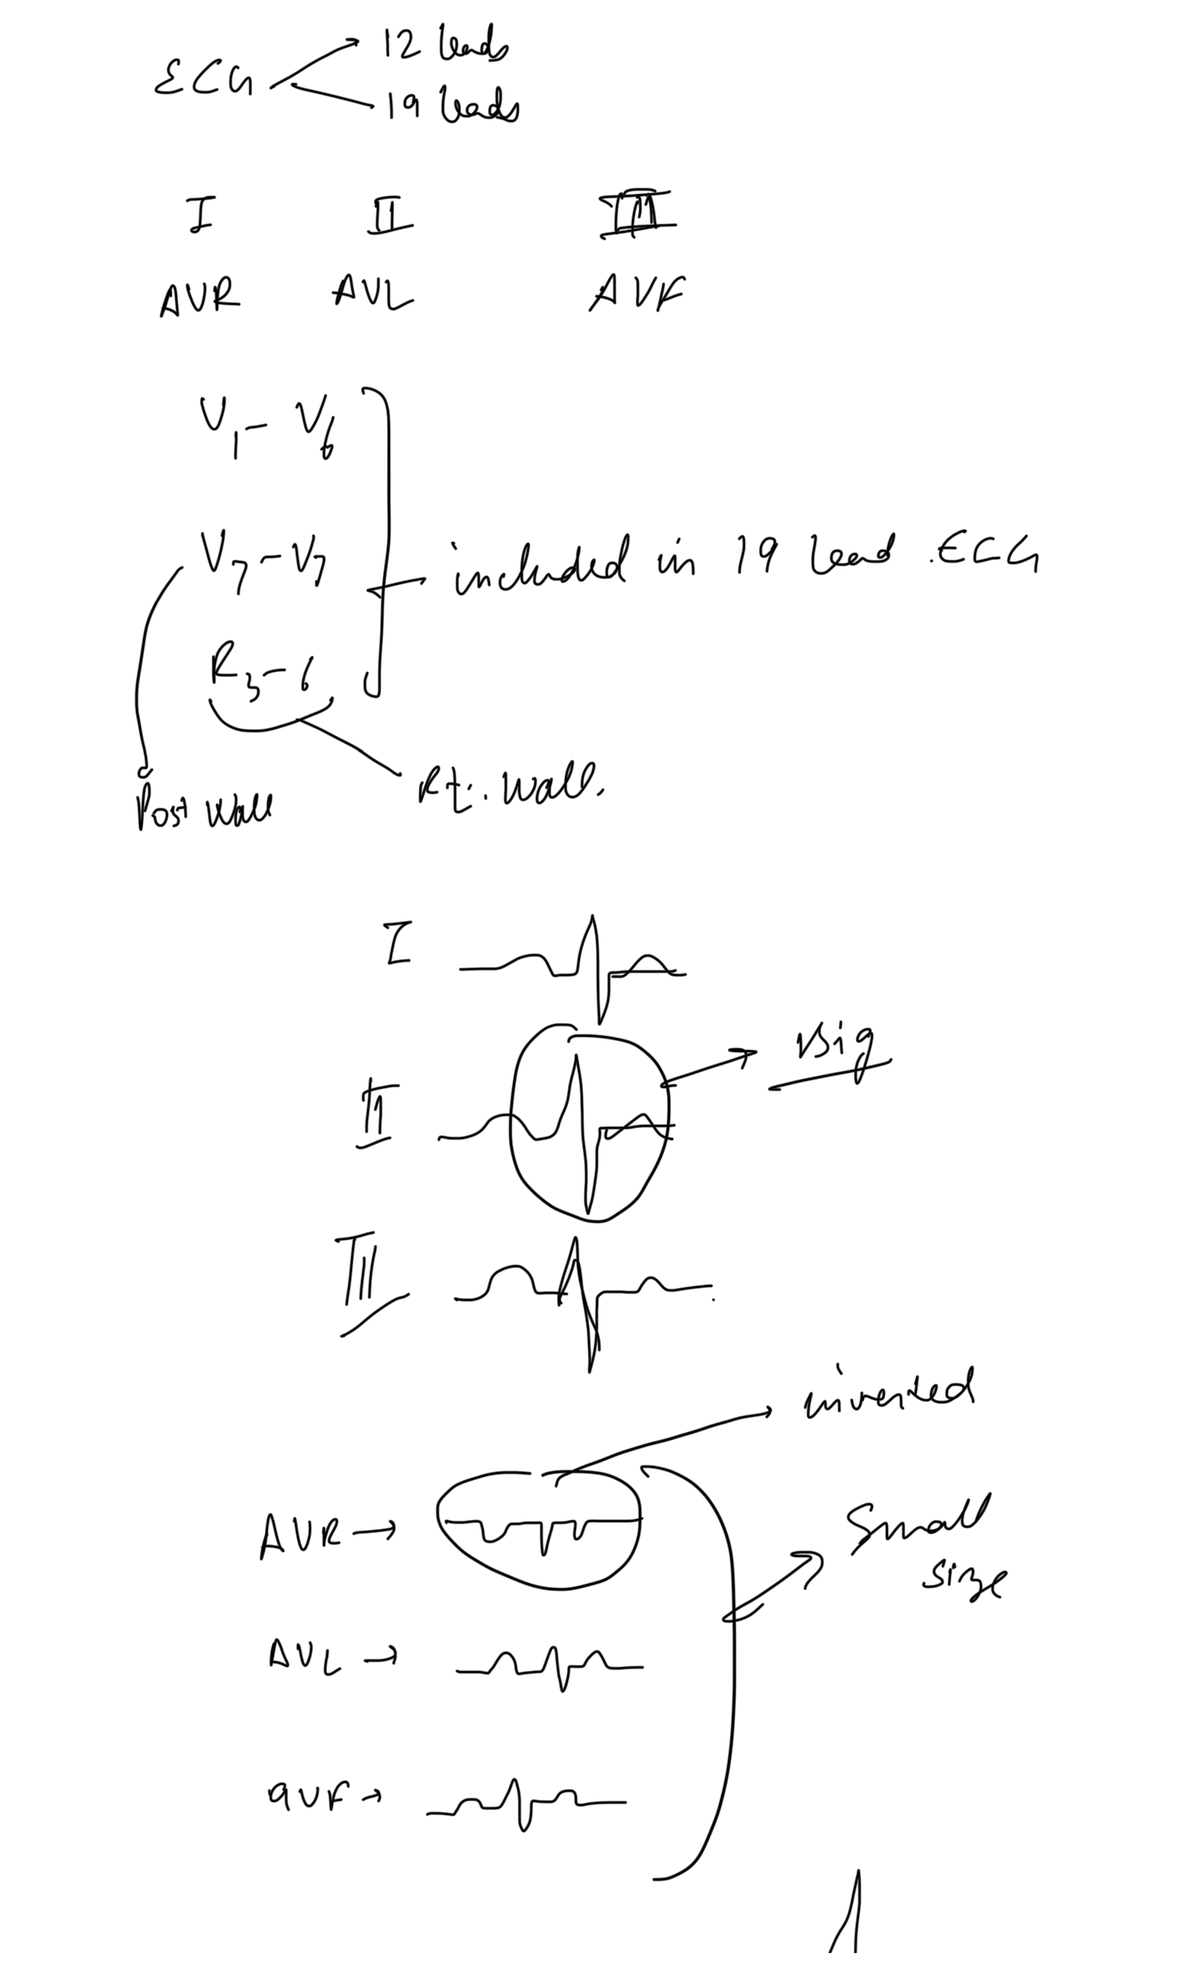 ECG
12 leads
19 leads
I II III
AVR AVL AVF
V1 - V6
V7 - V7
included in 19 lead ECG
R3 - 6
Post Wall
Rt. Wall.
I
II
Big
III
inverted
AVR →
Small
size
AVL →
aVF →